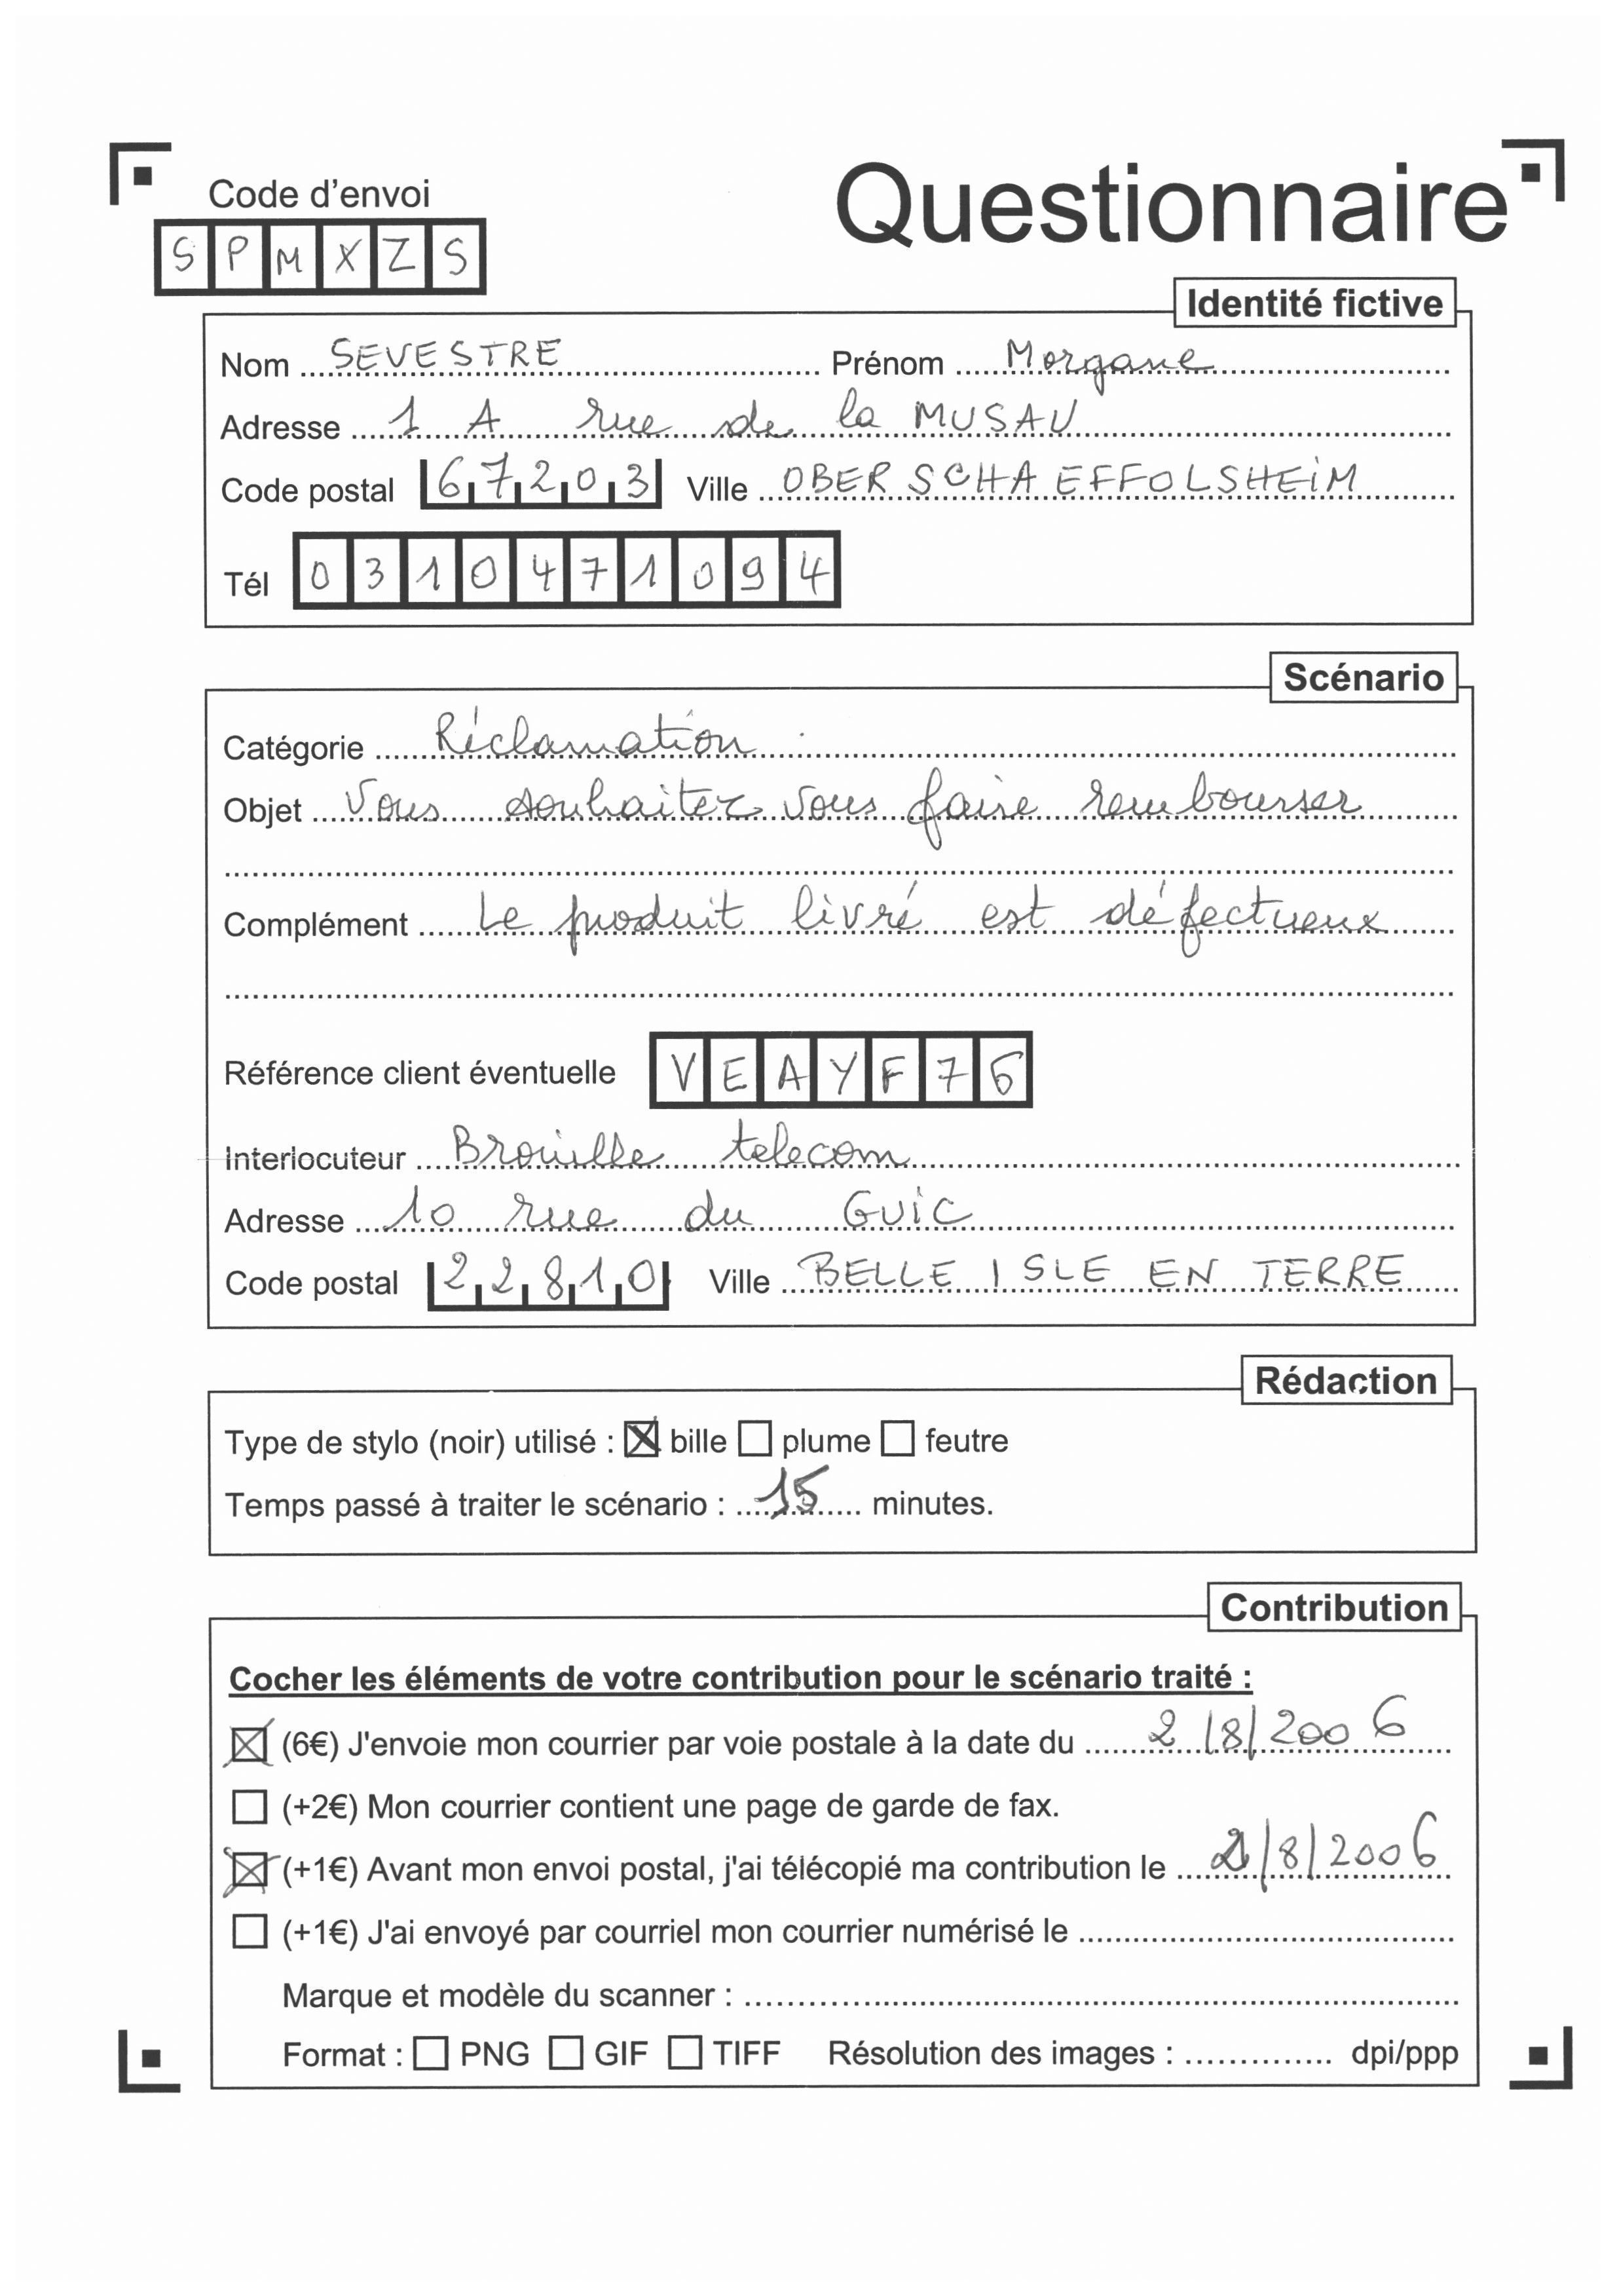 Code d'envoi
Questionnaire
SPMXZS
Identité fictive
Nom SEVESTRE Prénom Morgane
Adresse 1 A rue de la MUSAU
Code postal 67203 Ville OBERSCHAEFFOLSHEIM
Tél 0310471094
Scénario
Catégorie Réclamation
Objet Vous souhaitez vous faire rembourser
Complément Le produit livré est défectueux
Référence client éventuelle VEAYF76
Interlocuteur Brouille telecom
Adresse 10 rue du GUIC
Code postal 22810 Ville BELLE ISLE EN TERRE
Rédaction
Type de stylo (noir) utilisé : bille plume feutre
Temps passé à traiter le scénario : 15 minutes.
Contribution
Cocher les éléments de votre contribution pour le scénario traité :
(6€) J'envoie mon courrier par voie postale à la date du 2/8/2006
(+2€) Mon courrier contient une page de garde de fax.
(+1€) Avant mon envoi postal, j'ai télécopié ma contribution le 2/8/2006
(+1€) J'ai envoyé par courriel mon courrier numérisé le
Marque et modèle du scanner :
Format : PNG GIF TIFF Résolution des images : dpi/ppp